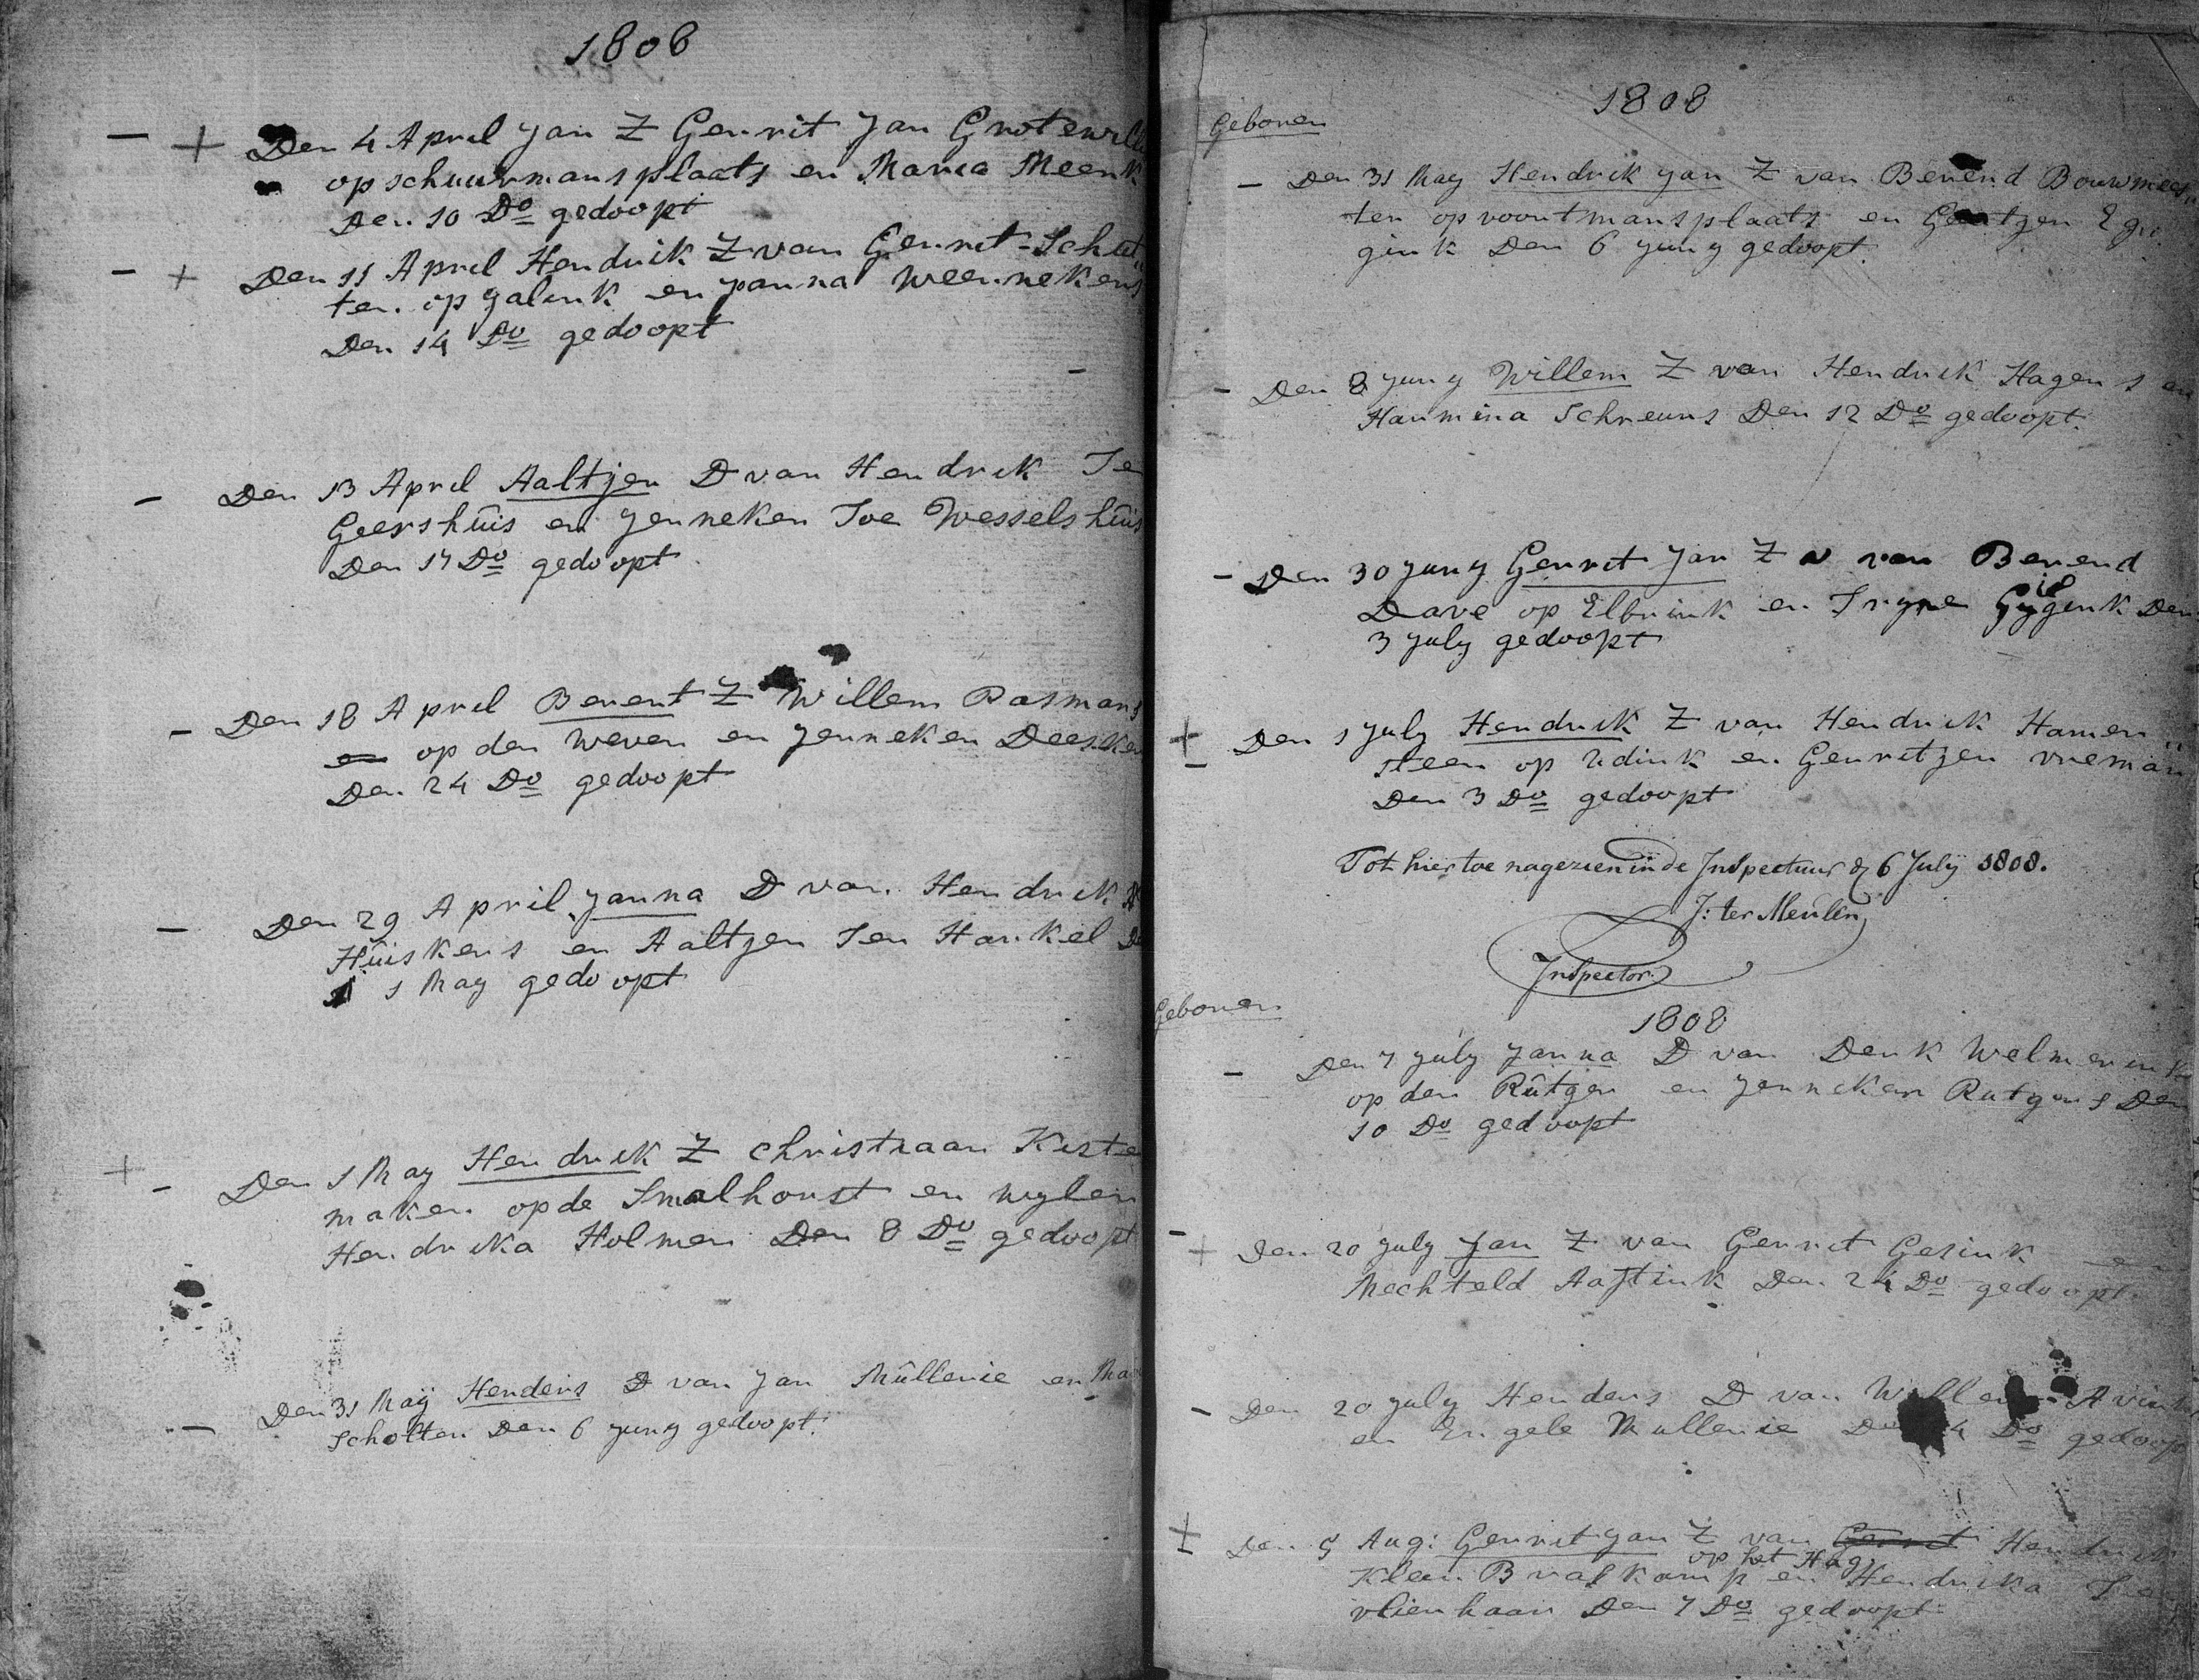 1808
Den 4 April Jan Z Gerrit Jan Grotewill
op schuurmansplaats en Maria Meenk
Den 10 Do gedoopt
Den 11 April Hendrik Z van Gerrit Schut„
ter op Jalink en Janna Weernekens
Den 14 Do gedoopt
Den 13 April Aaltjen D van Hendrik Te
Geershuis en Jenneken Toe Wesselshuis
Den 17 Do gedoopt
Den 18 April Berent Z Willem Pasmans
op den Wever en Jenneken Deesker
Den 24 Do gedoopt
Den 29 April Janna D van Hendrik
Huiskens en Aaltjen Ten Harkel De
1 May gedoopt
Den 1 May Hendrik Z Christiaan Kiste
maker op de Smalhorst en wylen
Hendrika Holmer Den 8 Do gedoopt
Den 31 Maÿ Henders D van Jan Mullerie en Ma
Scholten Den 6 Juny gedoopt.
1808
Geboren
Den 31 May Hendrik Jan Z van Berend Bouwmees„
ter op voortmansplaats en Geertjen Eg
gink Den 6 Juny gedoopt.
Den 8 Juny Willem Z van Hendrik Hagens en
Harmina Schreurs Den 12 Do gedoopt.
Den 30 Juny Gerrit Jan Z van Berend
Dave op Elbrink en Tryne Gygink Den
3 July gedoopt
Den 1 July Hendrik Z van Hendrik Hamer„
steen op Udink en Gerritjen vreman
Den 3 Do gedoopt
Tot hier toe nagezien in de Inspectuur d 6 Julÿ 1808.
J: ter Meulen
Inspector.
Geboren
1808
Den 7 July Janna D van Derk Welmerink
op den Rutger en Jenneken Rutgers Den
10 Do gedoopt
Den 20 July Jan Z van Gerrit Gesink en
Mechteld Aaftink Den 24 Do gedoopt.
Den 20 July Henders D van Willem Avink
en Engele Mullerie Den 4 Do gedoopt
Den 5 Aug: Gerrit Jan Z van Gerrit Hendrik
op het Hag
Klein Braskamp en Hendrika Te
vlierhaar Den 7 Do gedoopt